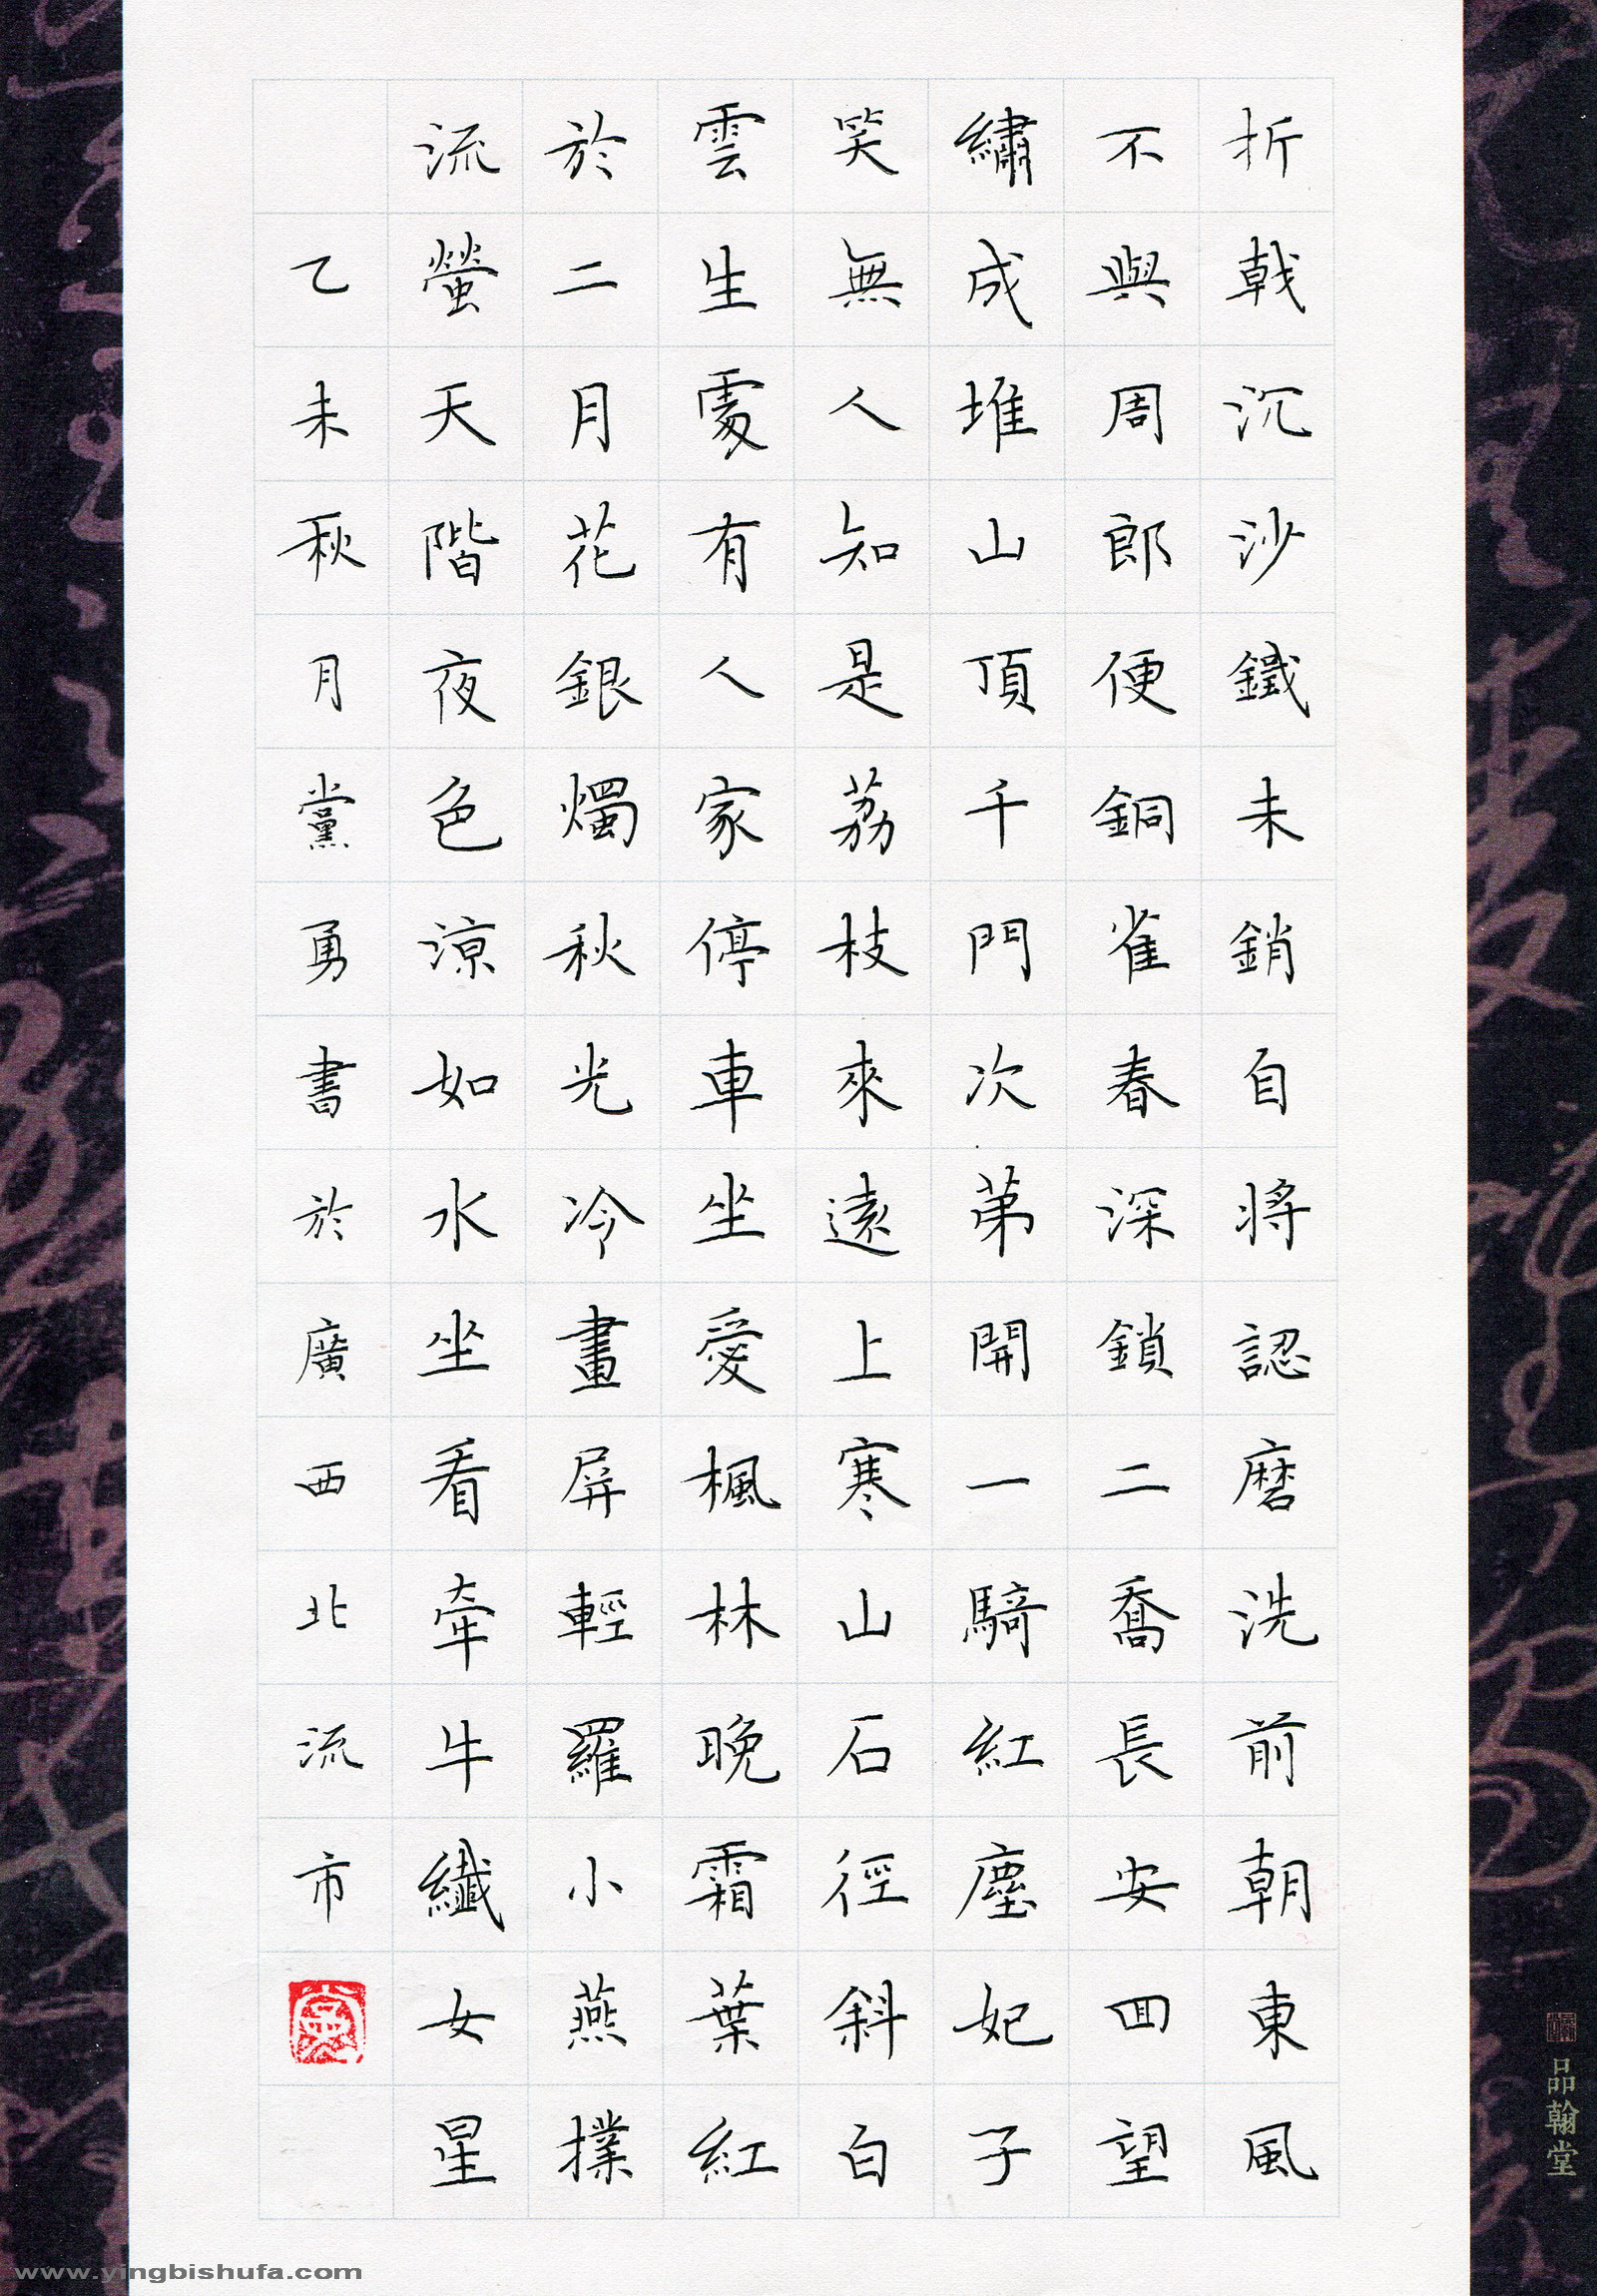 折戟沉沙鐵未銷自將認磨洗前朝東風
不與周郎便銅雀春深鎖二喬長安回望
繡成堆山頂千門次第開一騎紅塵妃子
笑無人知是荔枝來遠上寒山石徑斜白
雲生處有人家停車坐愛楓林晚霜葉紅
於二月花銀燭秋光冷畫屏輕羅小燕撲
流螢天階夜色涼如水坐看牽牛織女星
乙未秋月黨勇書於廣西北流市
品翰堂
www.yingbishufa.com